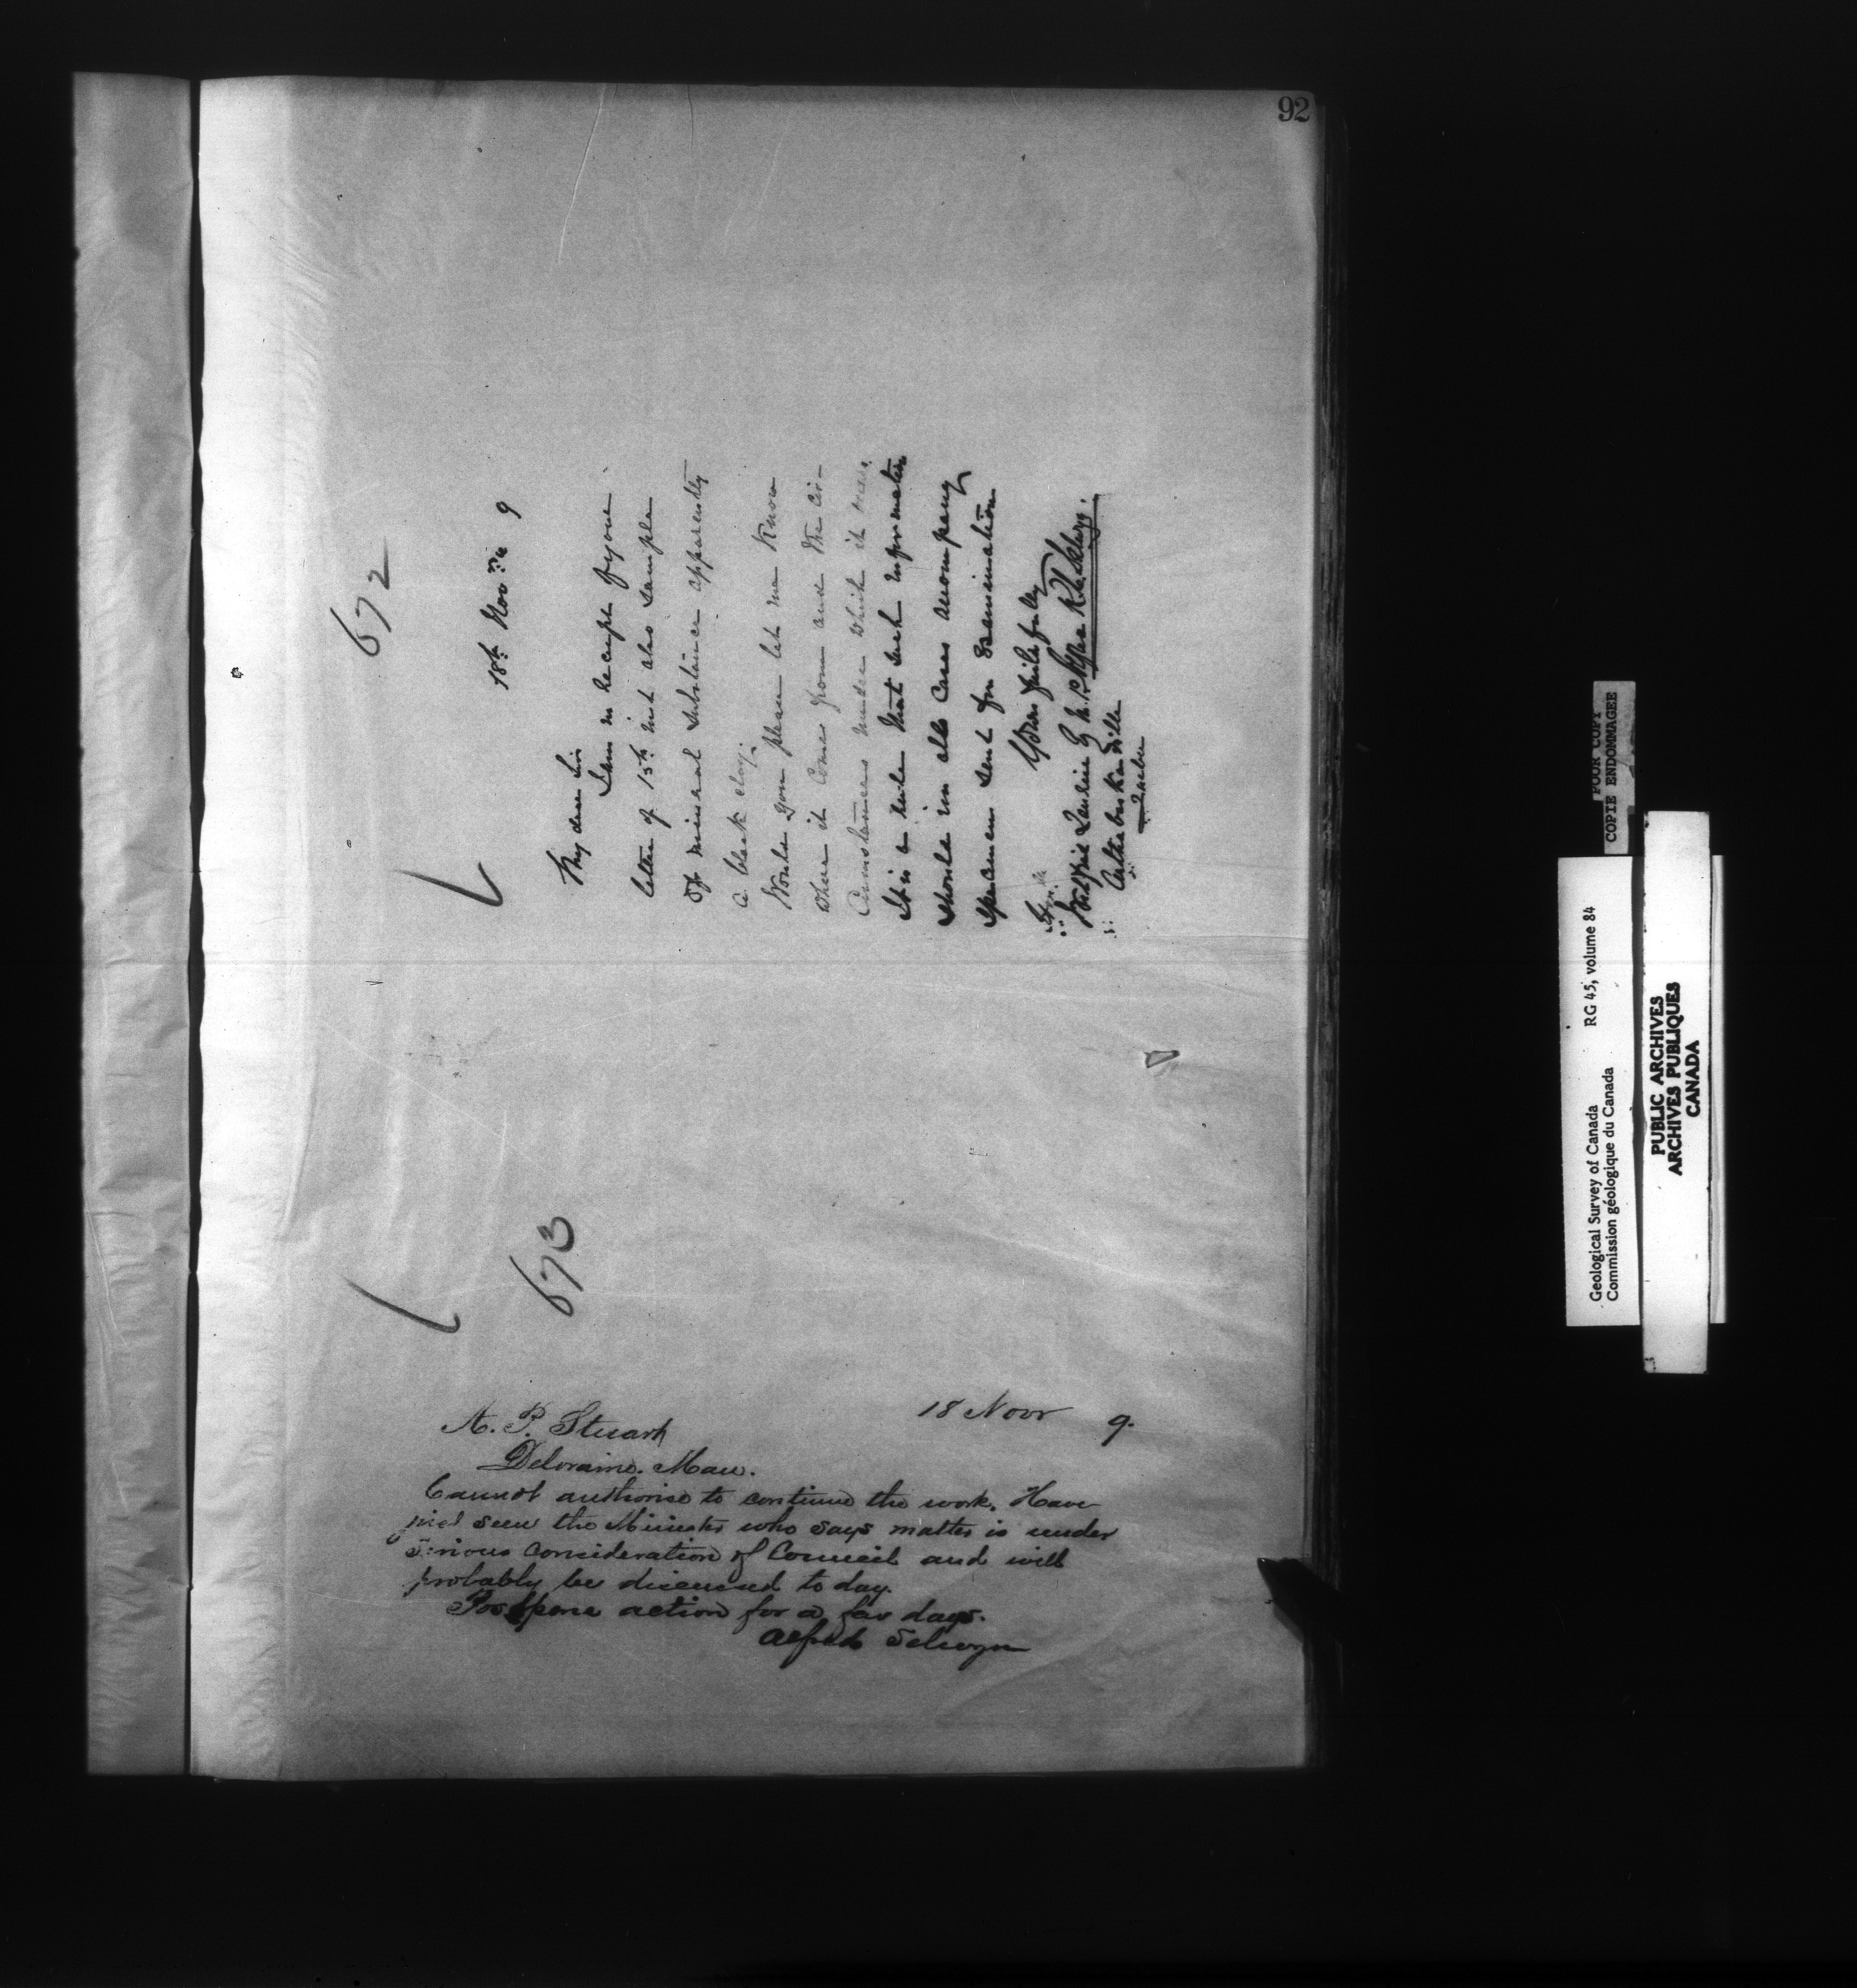 92
672
18th Novr 9
My dear Sir
I am in receipt of your
letter of 15th inst also sample
of mineral substance apparently
a black clay.
Would you please let me know
where it comes from and the cir-
cumstances under which it
It is a rule that such information
should in all cases accompany
specimens sent for examination
Yours faithfully
Wilfrid Laurier Q.C. M.P.
Arthabaskaville
Quebec
673
18 Novr 9.
A. P. Stuart
Deloraine. Man.
Cannot authorise to continue the work. Have
just seen the Minister who says matter is under
serious consideration of Council and will
probably be discussed to day.
Postpone action for a few days.
Alfred Selwyn
POOR COPY
COPIE ENDOMMAGEE
Geological Survey of Canada RG 45, volume 84
Commission géologique du Canada
PUBLIC ARCHIVES
ARCHIVES PUBLIQUES
CANADA